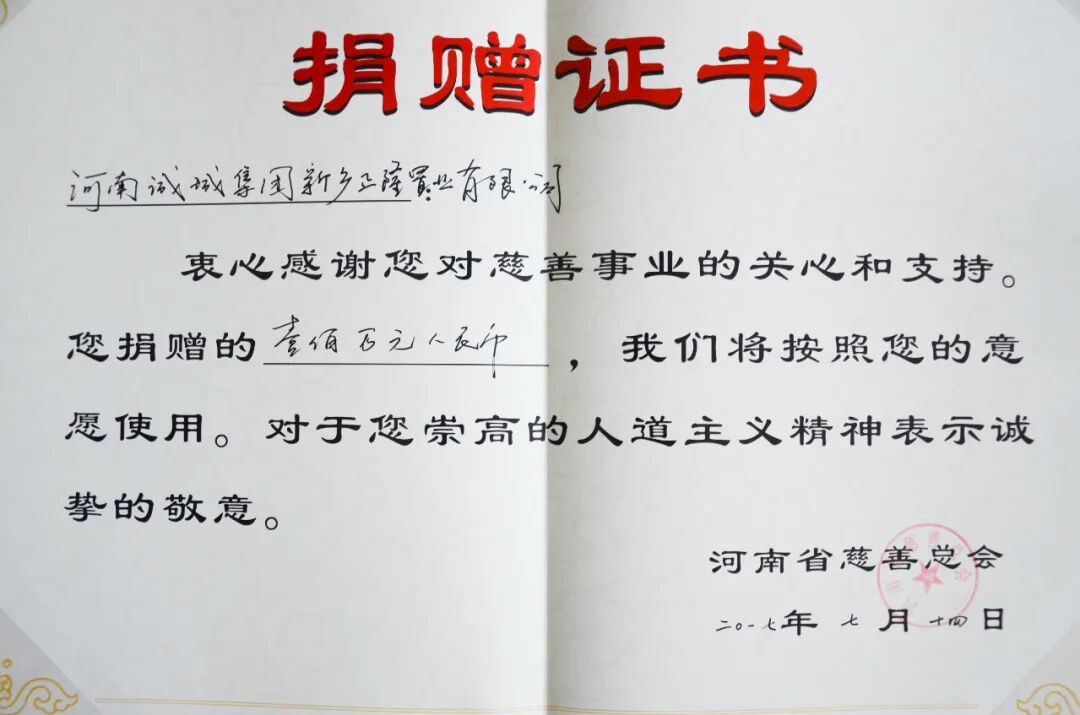 捐赠证书
河南诚城集团新乡正隆置业有限公司
衷心感谢您对慈善事业的关心和支持。
您捐赠的壹佰万元人民币，我们将按照您的意
愿使用。对于您崇高的人道主义精神表示诚
挚的敬意。
河南省慈善总会
二〇一七年七月十四日